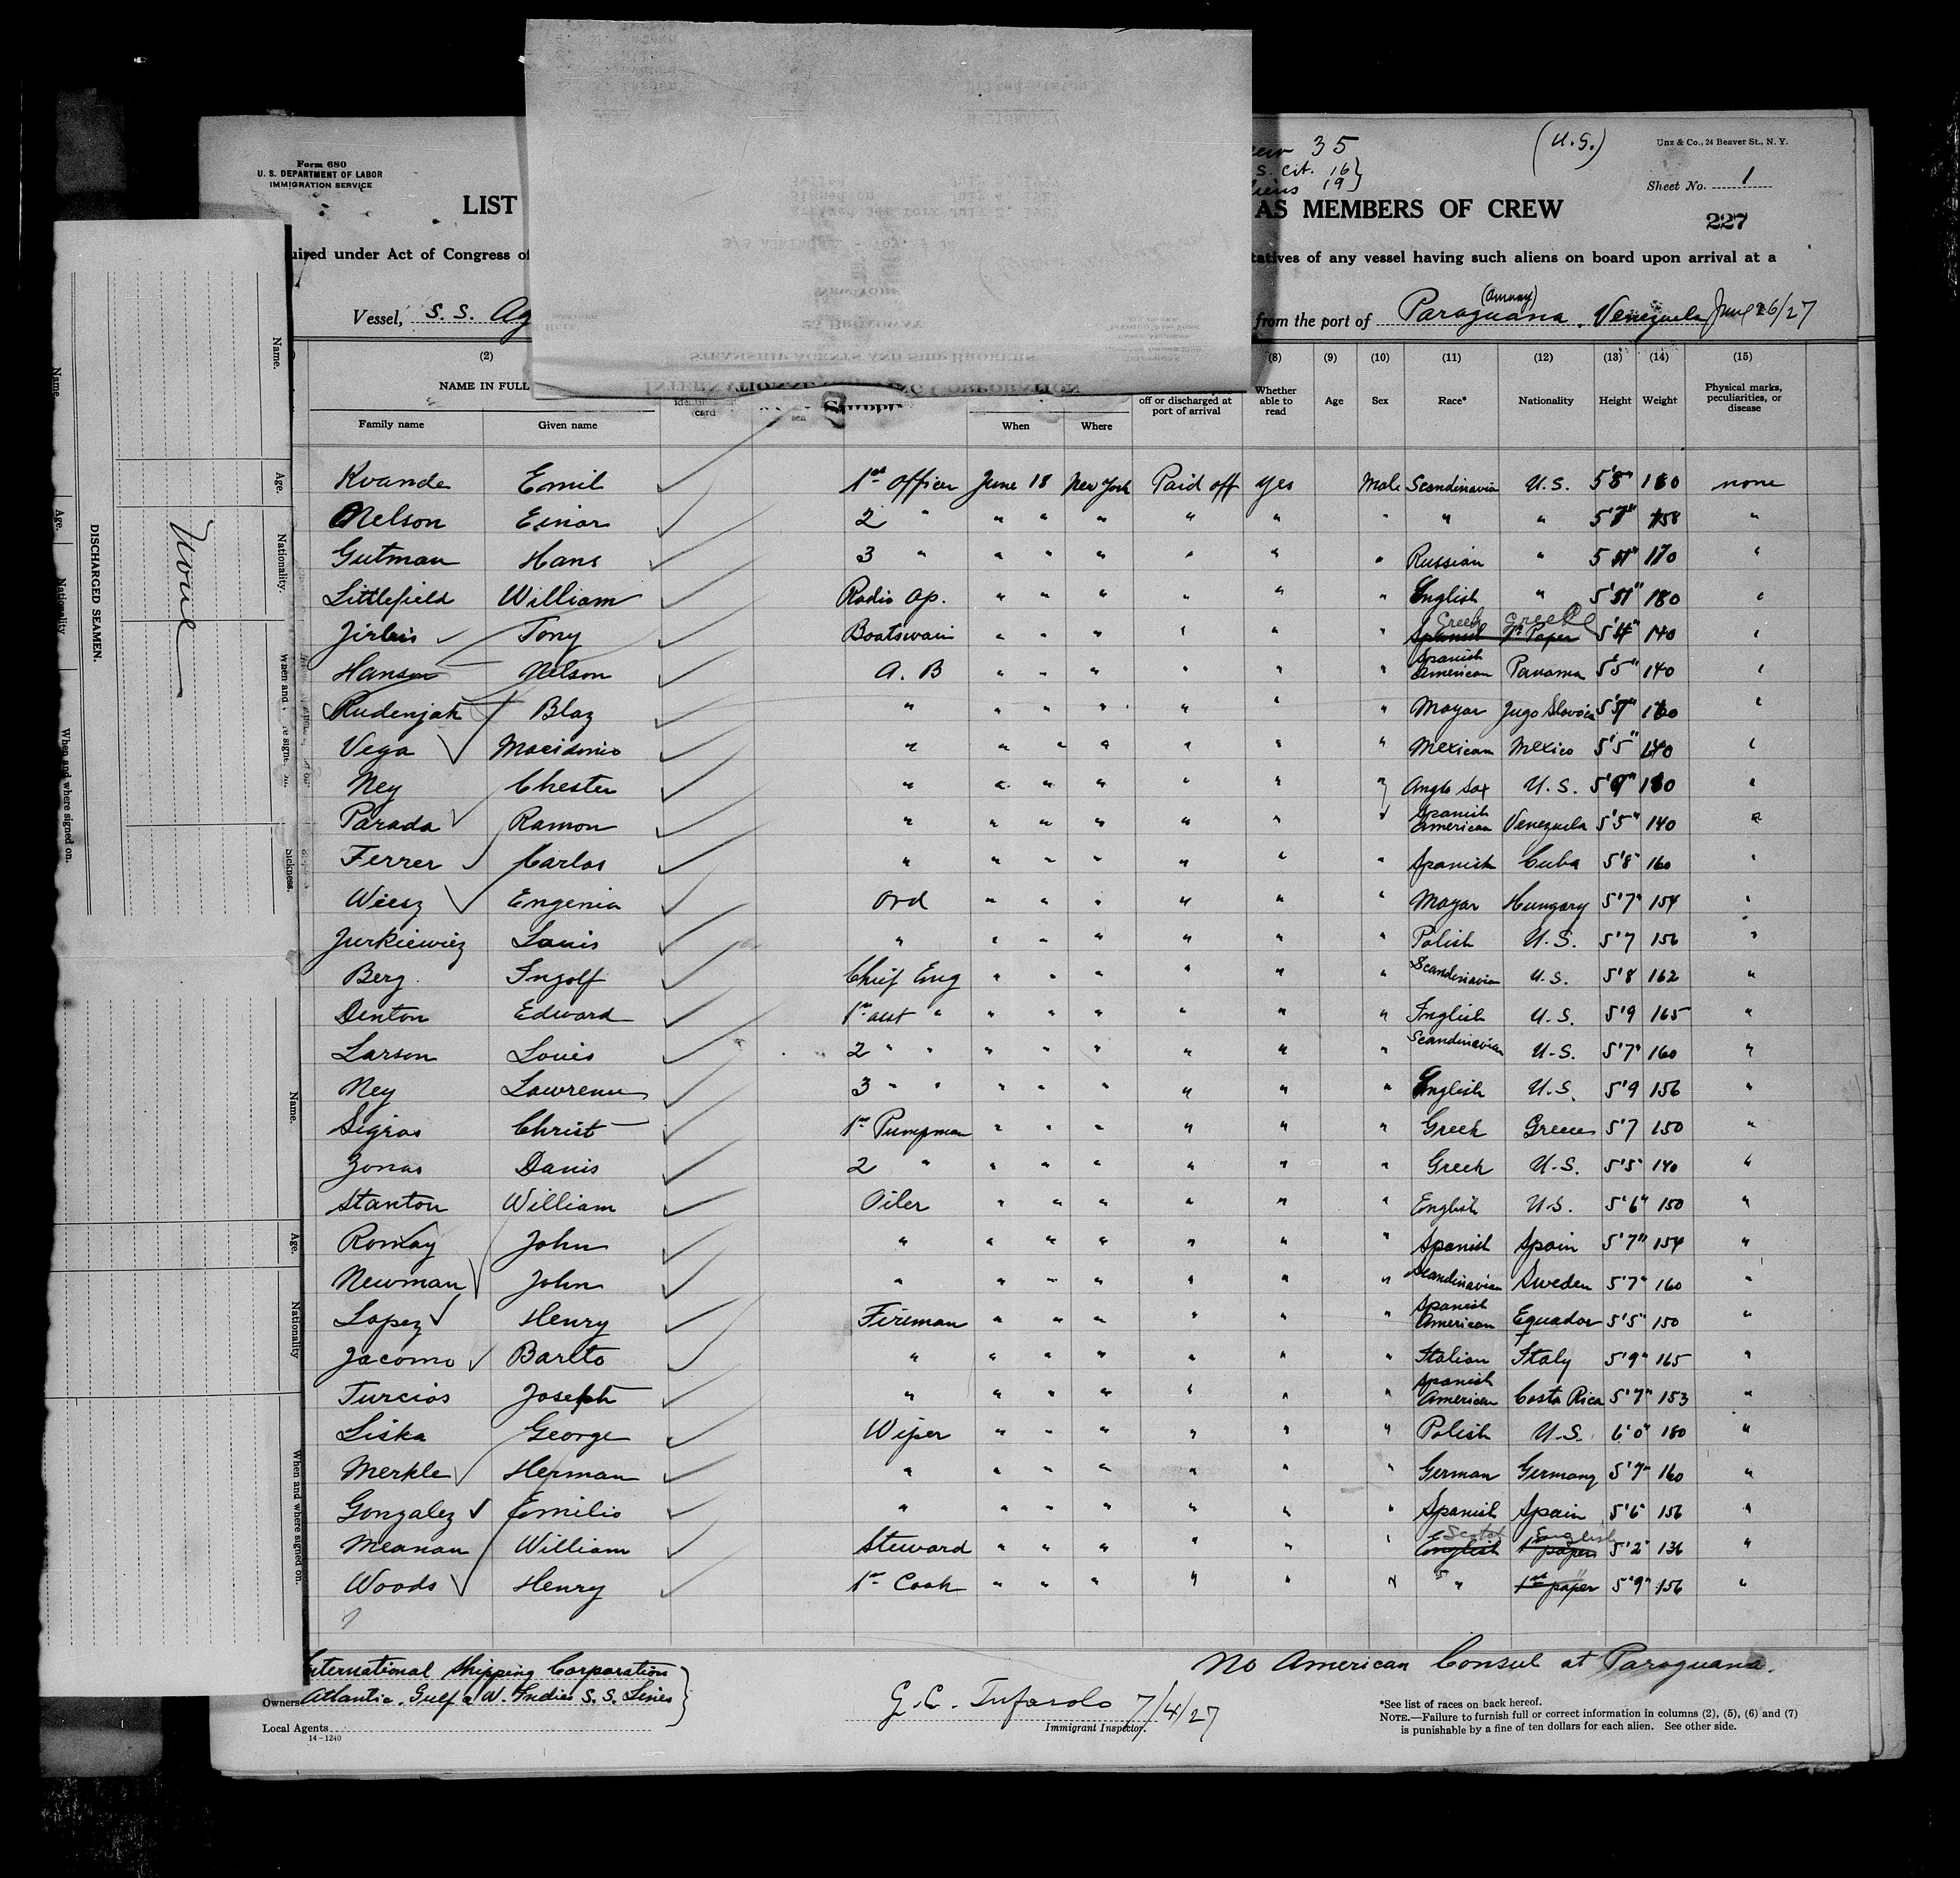 Form 680
U. S. DEPARTMENT OF LABOR
IMMIGRATION SERVICE
35
(U.S.)
Unz & Co., 24 Beaver St., N. Y.
S. Cit. 16}
19}
Sheet No. 1
LIST AS MEMBERS OF CREW
227
uired under Act of Congress of tatives of any vessel having such aliens on board upon arrival at a
Vessel, S. S. Ag from the port of Paraguana, Venezuela June 26/27
(2) (8) (9) (10) (11) (12) (13) (14) (15)
NAME IN FULL
Family name Given name card When Where off or discharged at port of arrival Whether able to read Age Sex Race* Nationality Height Weight Physical marks, peculiarities, or disease
Kvande Emil 1st Officer June 18 New York Paid off yes Male Scandinavia U.S. 5'8" 180 none
Nelson Einar 2 " " " " " " " " " 5'7" 158 "
Gutman Hans 3 " " " " " " " Russian " 170 "
Littlefield William Radio Op. " " " " " " English " 180 "
Tony Boatswain " " " " " " Spanish 1st Paper Greek Greece 5'4" 140 "
Hanson Nelson A. B " " " " " " Spanish American Panama 5'5" 140 "
Rudenjak Blaz " " " " " " " Magar Jugo Slovacia 5'7" "
Vega Macidonio " " " " " " " Mexican Mexico 5'5" 140 "
Ney Chester " " " " " " " Anglo Sax U.S. "
Parada Ramon " " " " " " " Spanish American Venezuela 5'5" 140 "
Ferrer Carlos " " " " " " " Spanish Cuba 5'8" 160 "
Wiesz Engenia Ord " " " " " " Magar Hungary 5'7" 154 "
Jurkiewiez Louis " " " " " " " Polish U.S. 5'7 156 "
Berg Ingolf Chief Eng " " " " " " Scandinavian U.S. 5'8 162 "
Denton Edward 1st asst " " " " " " " Inglish U.S. 5'9 165 "
Larson Louis 2 " " " " " " " " Scandinavian U.S. 5'7" 160 "
Ney Lawrence 3 " " " " " " " " English U.S. 5'9 156 "
Sigras Christ 1st Pumpman " " " " " " Greek Greece 5'7 150 "
Zonas Danis 2 " " " " " " " Greek U.S. 5'5" 140 "
Stanton William Oiler " " " " " " English U.S. 5'6" 150 "
Romay John " " " " " " " Spanish Spain 5'7" 154 "
Newman John " " " " " " " Scandinavian Sweden 5'7" 160 "
Lopez Henry Fireman " " " " " " Spanish American Equador 5'5" 150 "
Jacomo Bareto " " " " " " " Italian Italy 5'9" 165 "
Turcios Joseph " " " " " " " Spanish American Costa Rica 5'7" 153 "
Liska George Wiper " " " " " " Polish U.S. 6'0" 180 "
Merkle Herman " " " " " " " German Germany 5'7" 160 "
Gonzalez Emilio " " " " " " " Spanish Spain 5'6" 156 "
Meanan William Steward " " " " " " English Scotch 1st papers English 5'2" 136 "
Woods Henry 1st Cook " " " " " " " 1st paper 5'9" 156 "
International Shipping Corporation
Owners Atlantic, Gulf & W. Indies S. S. Lines
Local Agents
14-1240
G. C. Tufarolo 7/4/27
Immigrant Inspector.
No American Consul at Paraguana.
*See list of races on back hereof.
NOTE.—Failure to furnish full or correct information in columns (2), (5), (6) and (7)
is punishable by a fine of ten dollars for each alien. See other side.
DISCHARGED SEAMEN.
Name. Age. Nationality. When and where signed on. Sickness.
None
Name. Age. Nationality When and where signed on.
INTERNATIONAL SHIPPING CORPORATION
STEAMSHIP AGENTS AND SHIP BROKERS
25 BROADWAY
NEW YORK